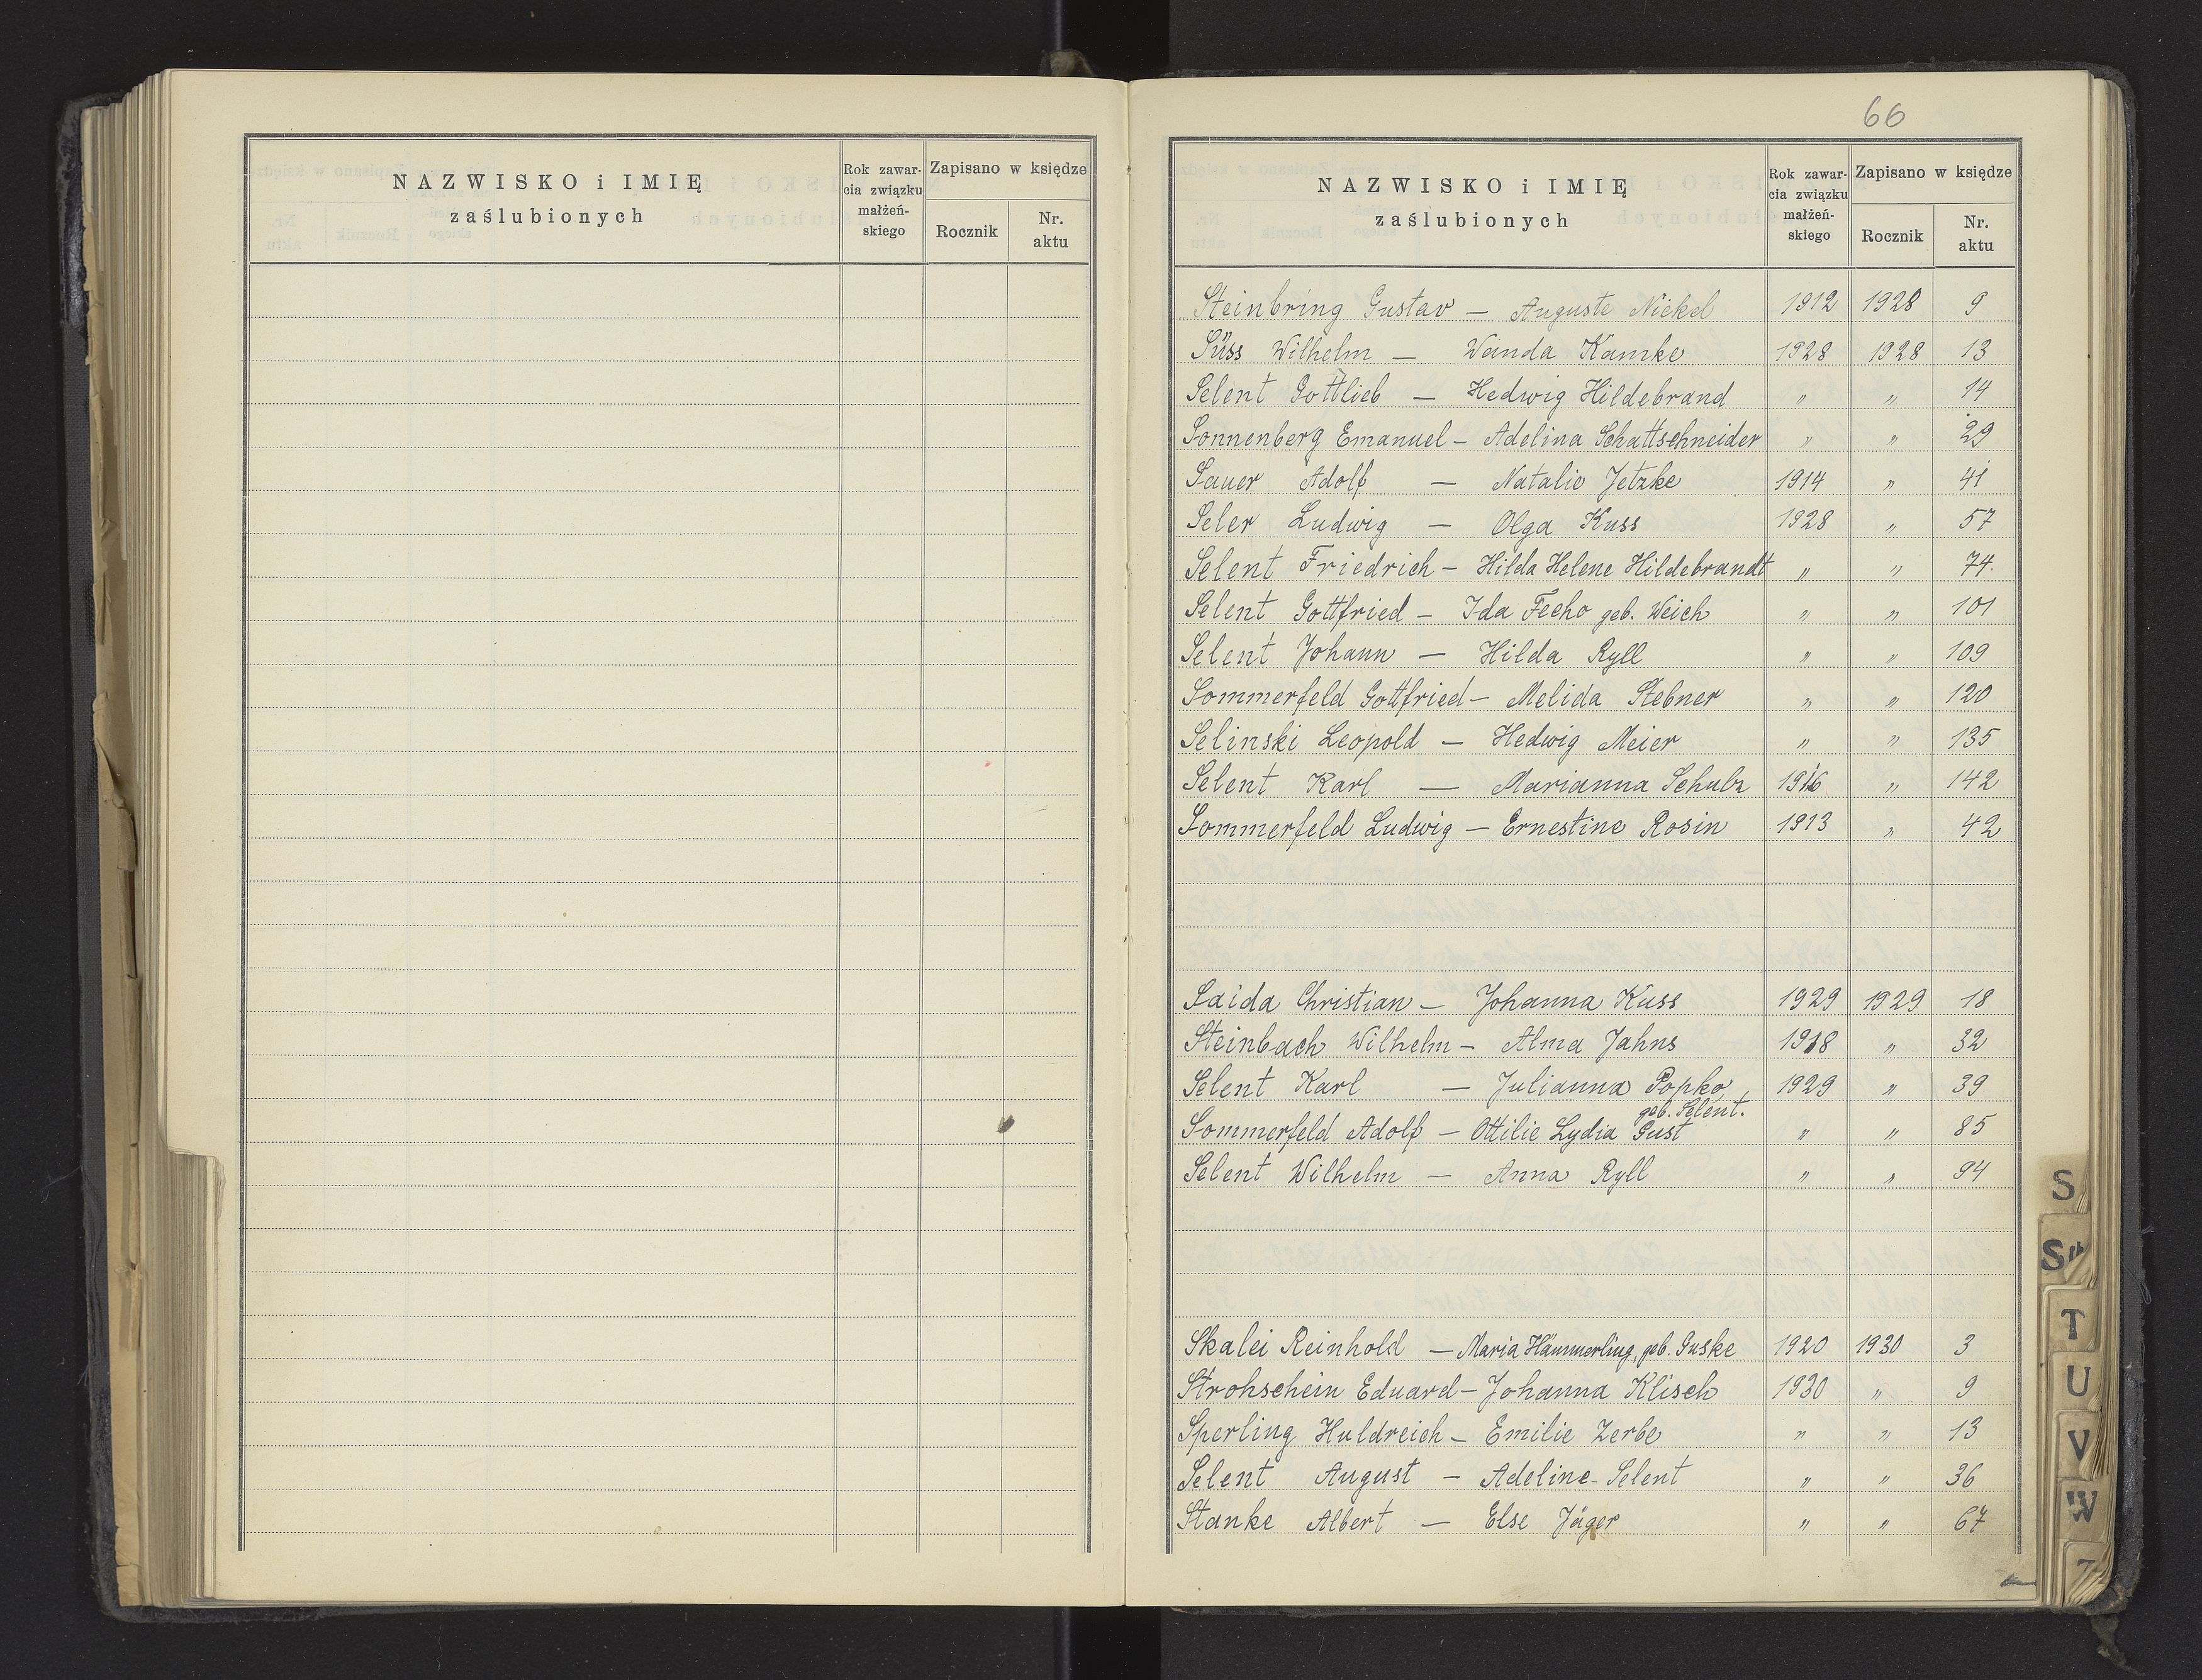 NAZWISKO i IMIĘ
zaślubionych
Rok zawar-
cia związku
małżeń-
skiego
Zapisano w księdze
Rocznik
Nr.
aktu
66
NAZWISKO i IMIĘ
zaślubionych
Rok zawar-
cia związku
małżeń-
skiego
Zapisano w księdze
Rocznik
Nr.
aktu
Steinbring Gustav — Auguste Nickel 1912 1928 9
Süss Wilhelm — Wanda Kamke 1928 1928 13
Selent Gottlieb — Hedwig Hildebrand " " 14
Sonnenberg Emanuel — Adelina Schattschneider " " 29
Sauer Adolf — Natalie Jetzke 1914 " 41
Seler Ludwig — Olga Kuss 1928 " 57
Selent Friedrich — Hilda Helene Hildebrandt " " 74
Selent Gottfried — Ida Fecho geb. Weich " " 101
Selent Johann — Hilda Ryll " " 109
Sommerfeld Gottfried — Melida Stebner " " 120
Selinski Leopold — Hedwig Meier " " 135
Selent Karl — Marianna Schulz 1916 " 142
Sommerfeld Ludwig — Ernestine Rosin 1913 " 42
Saida Christian — Johanna Kuss 1929 1929 18
Steinbach Wilhelm — Alma Jahns 1918 " 32
Selent Karl — Julianna Popko 1929 " 39
geb. Selent.
Sommerfeld Adolf — Ottilie Lydia Gust " " 85
Selent Wilhelm — Anna Ryll " " 94
Skalei Reinhold — Maria Hämmerling, geb. Guske 1920 1930 3
Strohschein Eduard — Johanna Klisch 1930 " 9
Sperling Huldreich — Emilie Zerbe " " 13
Selent August — Adeline Selent " " 36
Stanke Albert — Else Jäger " " 67
S
T
U
V
W